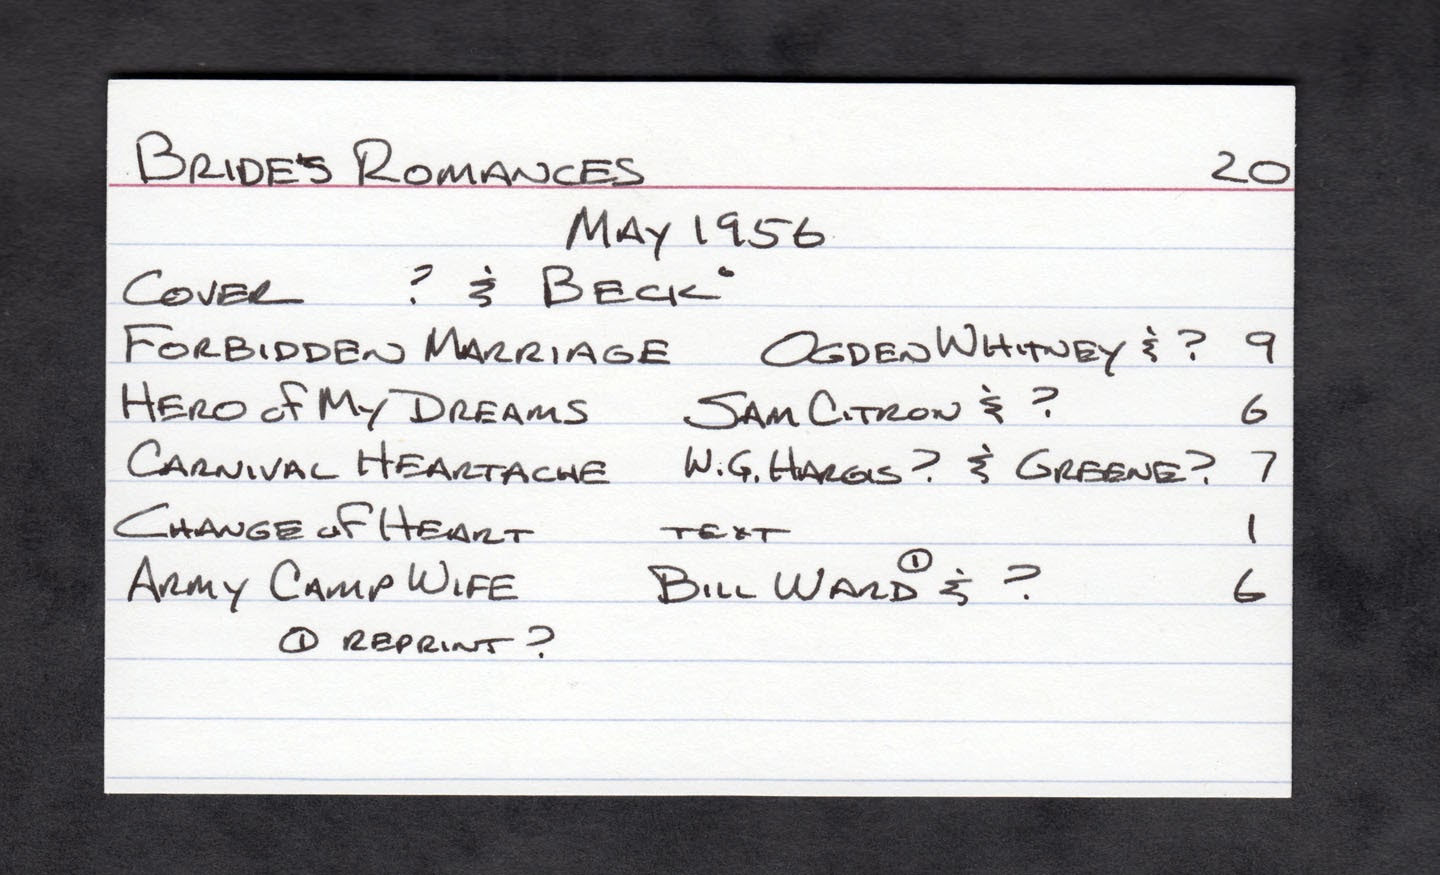 BRIDE'S ROMANCES 20
MAY 1956
COVER ? & BECK
FORBIDDEN MARRIAGE OGDEN WHITNEY & ? 9
HERO of MY DREAMS SAM CITRON & ? 6
CARNIVAL HEARTACHE W.G. HARGIS? & GREENE? 7
CHANGE of HEART TEXT 1
ARMY CAMP WIFE BILL WARD① & ? 6
① REPRINT?